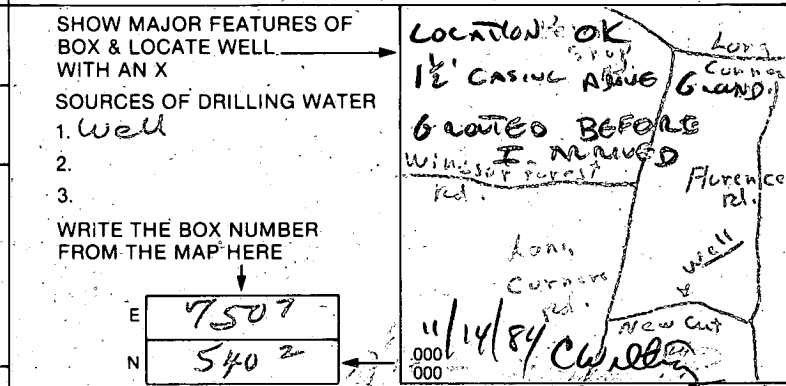 SHOW MAJOR FEATURES OF
BOX & LOCATE WELL
WITH AN X
SOURCES OF DRILLING WATER
1. Well
2.
3.
WRITE THE BOX NUMBER
FROM THE MAP HERE
E 7507
N 5402
LOCATION OK
1½' CASING ABOVE GROUND.
GROUTED BEFORE
I ARRIVED
Long
Corner
Windsor Forest
Rd.
Florence
Rd.
Long
Corners
Rd.
Well
New Cut
11/14/84
000
000